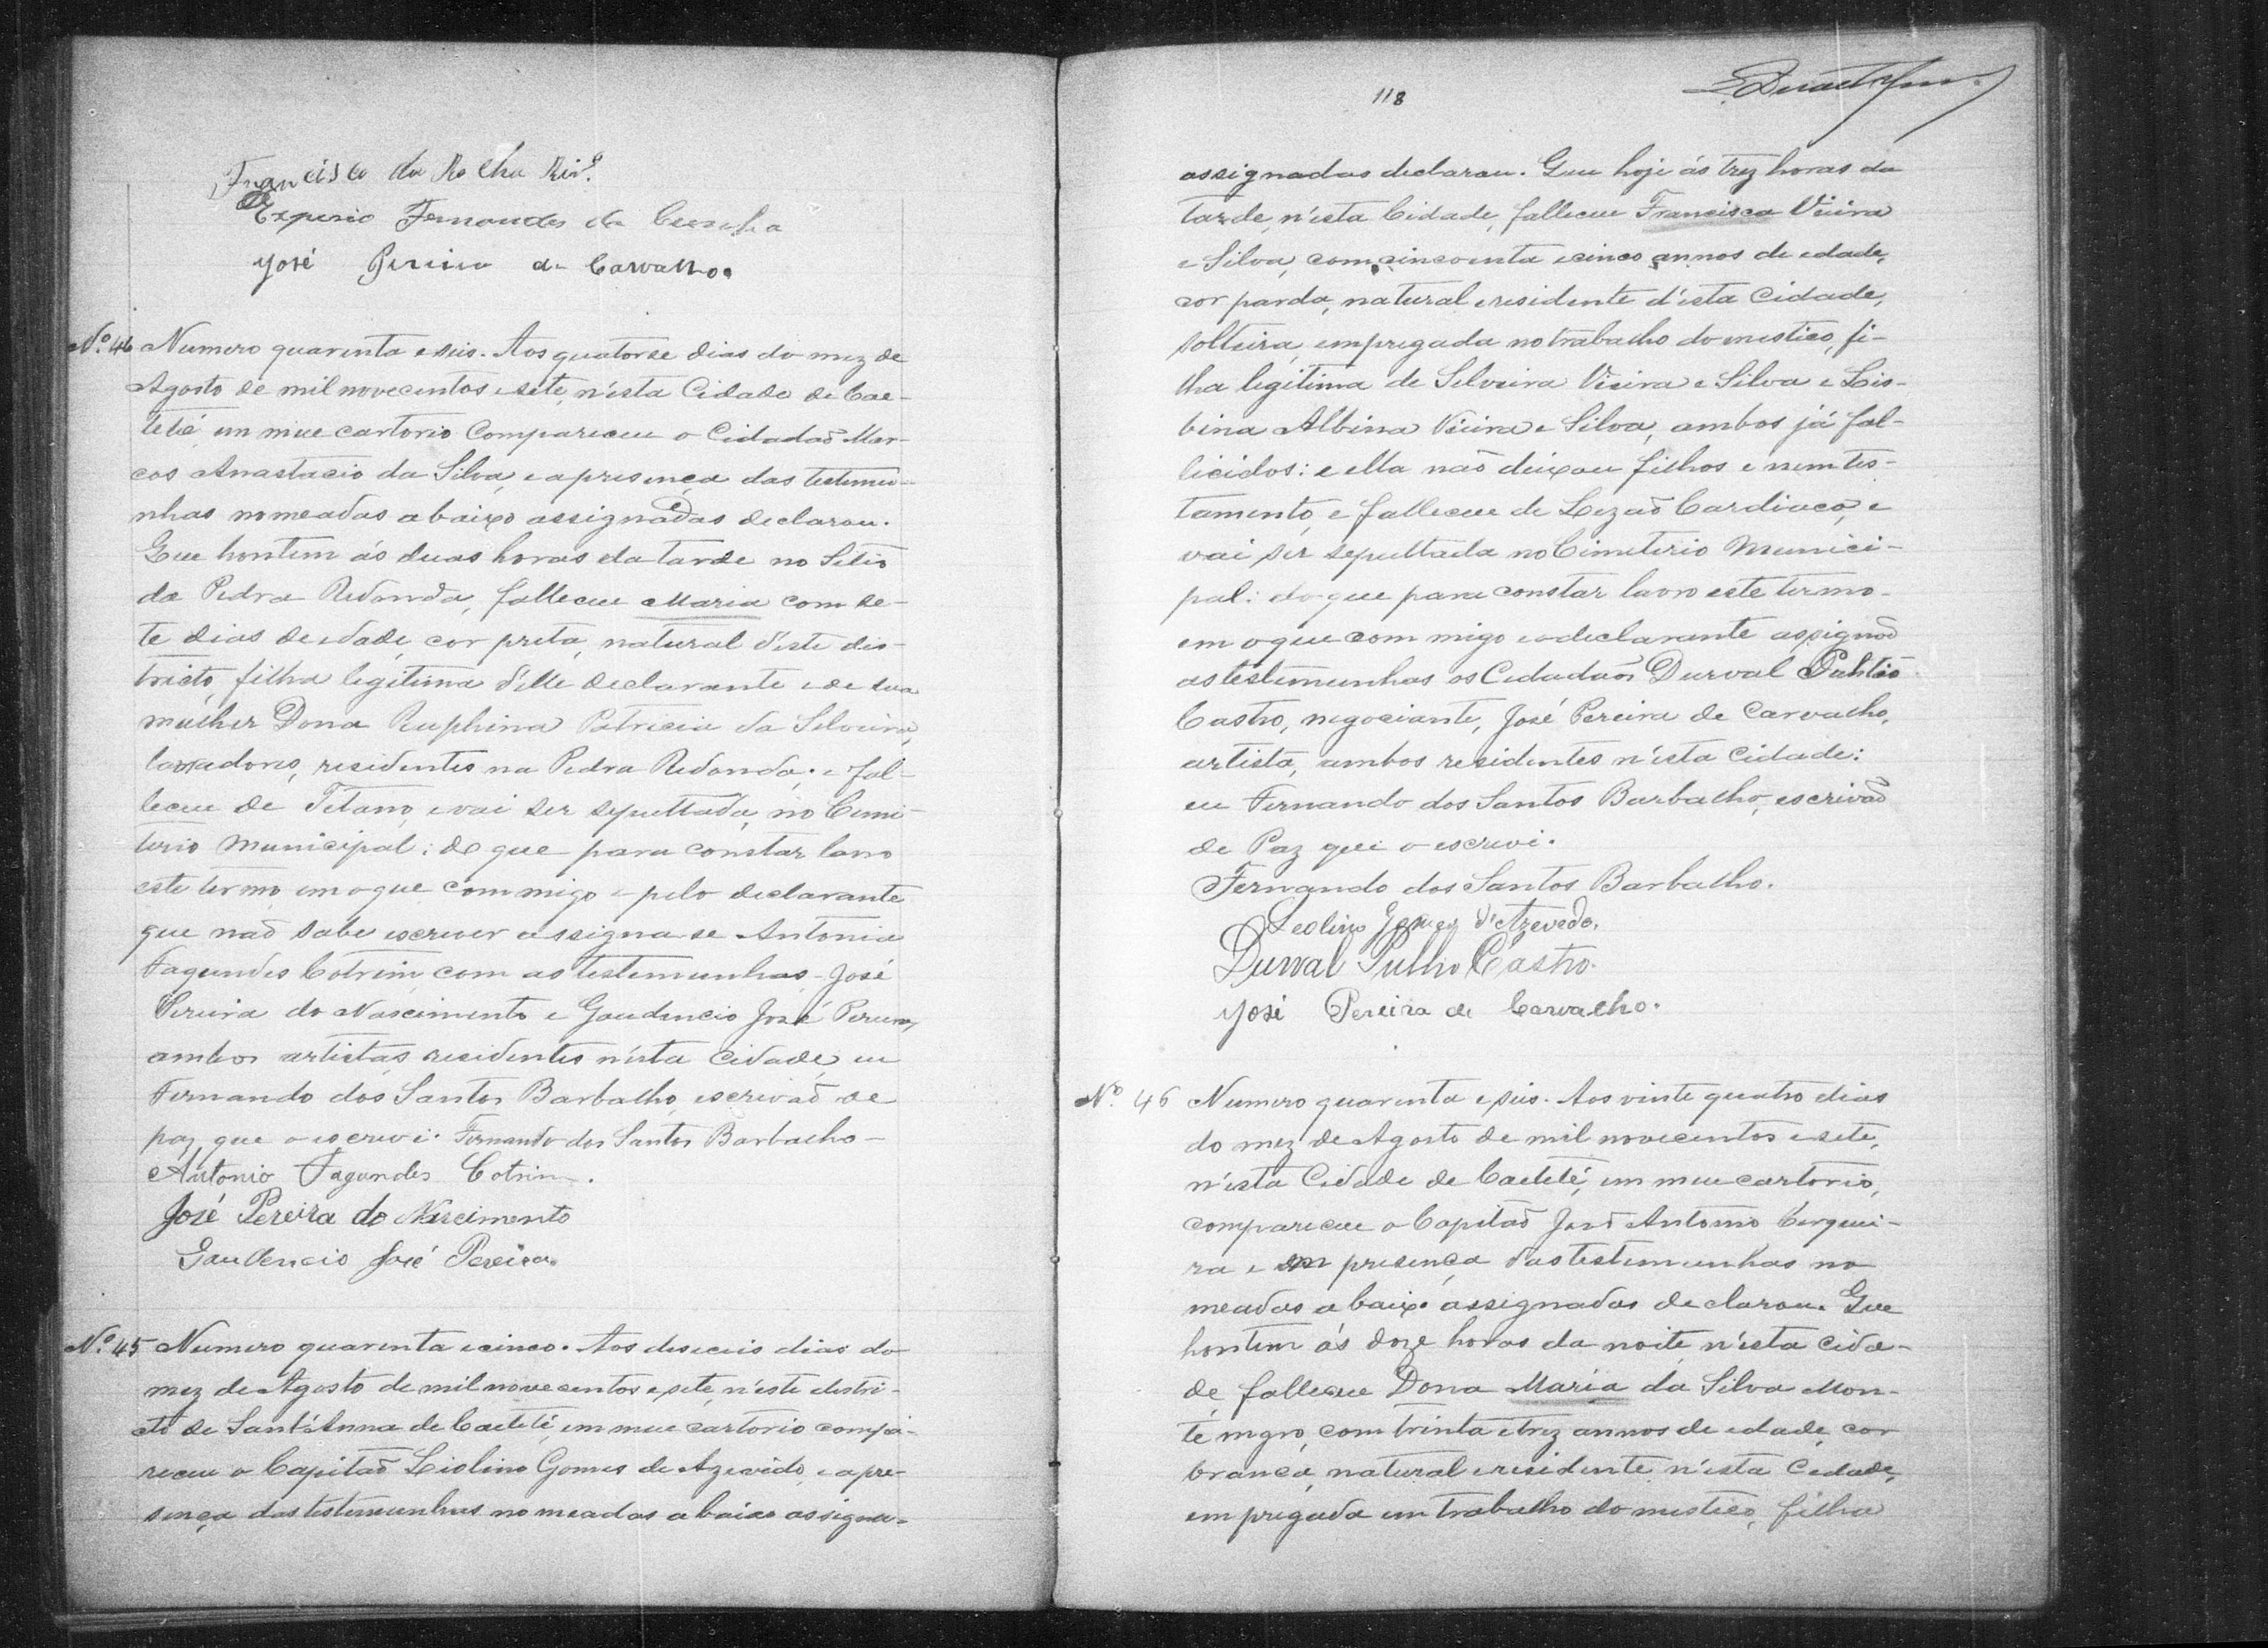 Francisco da Rocha Rivº
Experio Fernandes da Cunha
José Pereira de Carvalho.
Nº 46 Numero quarenta e seis. Aos quatorse dias do mez de
Agosto de mil novecentos e sete, n'ésta Cidade de Cae-
teté em meu cartorio Compareceu o Cidadaõ Mar-
cos Anastacio da Silva, e a presença das testemu-
nhas nomeadas abaixo assignadas declarou.
Que hontem ás duas horas da tarde no Sitio
da Pedra Redonda, falleceu Maria com se-
te dias de edade, cor preta, natural d'éste dis-
tricto, filha legitima d'elle declarante e de sua
mulher Dona Ruphina Patricia da Silveira,
lavradores, residentes na Pedra Redonda; e fal-
leceu de Tetano, e vai ser sepultada, no Cemi-
terio Municipal: do que para constar lavro
este termo em o que commigo e pelo declarante
que naõ sabe escrever assigna se Antonio
Fagundes Cotrim com as testemunhas José
Pereira do Nascimento e Gaudencio José Pereira,
ambos artistas residentes n'ésta Cidade, eu
Fernando dos Santos Barbalho, escrivaõ de
paz que o escrevi. Fernando dos Santos Barbalho
Antonio Fagundes Cotrim.
José Pereira do Nascimento
Gaudencio José Pereira.
Nº 45 Numero quarenta e cinco. Aos deseceis dias do
mez de Agosto de mil novecentos e sete, n'éste distri-
cto de Sant'Anna de Caeteté, em meu cartorio compa-
receu o Capitaõ Liolino Gomes de Azevêdo, e a pre-
sença das testemunhas nomeadas abaixo assigna-
118
assignadas declarou. Que hoje ás trez horas da
tarde, n'ésta Cidade, falleceu Francisca Vieira
e Silva, com cincoenta e cinco annos de edade,
cor parda, natural e residente d'ésta Cidade,
solteira, empregada no trabalho domestico, fi-
lha legitima de Silveira Vieira e Silva e Lis-
bina Albina Vieira e Silva, ambos já fal-
licidos: e ella naõ deixou filhos e nem tes-
tamento, e falleceu de Lezaõ Cardiaca, e
vai ser sepultada no Cimeterio Munici-
pal: do que para constar lavro este termo
em o que com migo e o declarante assignaõ
as testemunhas os Cidadaõs Durval Publio
Castro, negociante, José Pereira de Carvalho,
artista, ambos residentes n'ésta Cidade:
eu Fernando dos Santos Barbalho, escrivaõ
de Paz que o escrevi.
Fernando dos Santos Barbalho.
Leolino Gomes d'Azevedo.
Durval Publio Castro.
José Pereira de Carvalho.
Nº 46 Numero quarenta e seis. Aos vinte quatro dias
do mez de Agosto de mil novecentos e sete,
n'ésta Cidade de Caeteté, em meu cartorio,
compareceu o Capitaõ José Antonio Cerquei-
ra e em presença das testemunhas no
meadas abaixo assignadas declarou. Que
hontem ás doze horas da noite, n'ésta cida-
de, falleceu Dona Maria da Silva Mon-
te negro, com trinta e trez annos de edade, cor
branca, natural e residente n'ésta Cidade,
empregada em trabalho domestico, filha